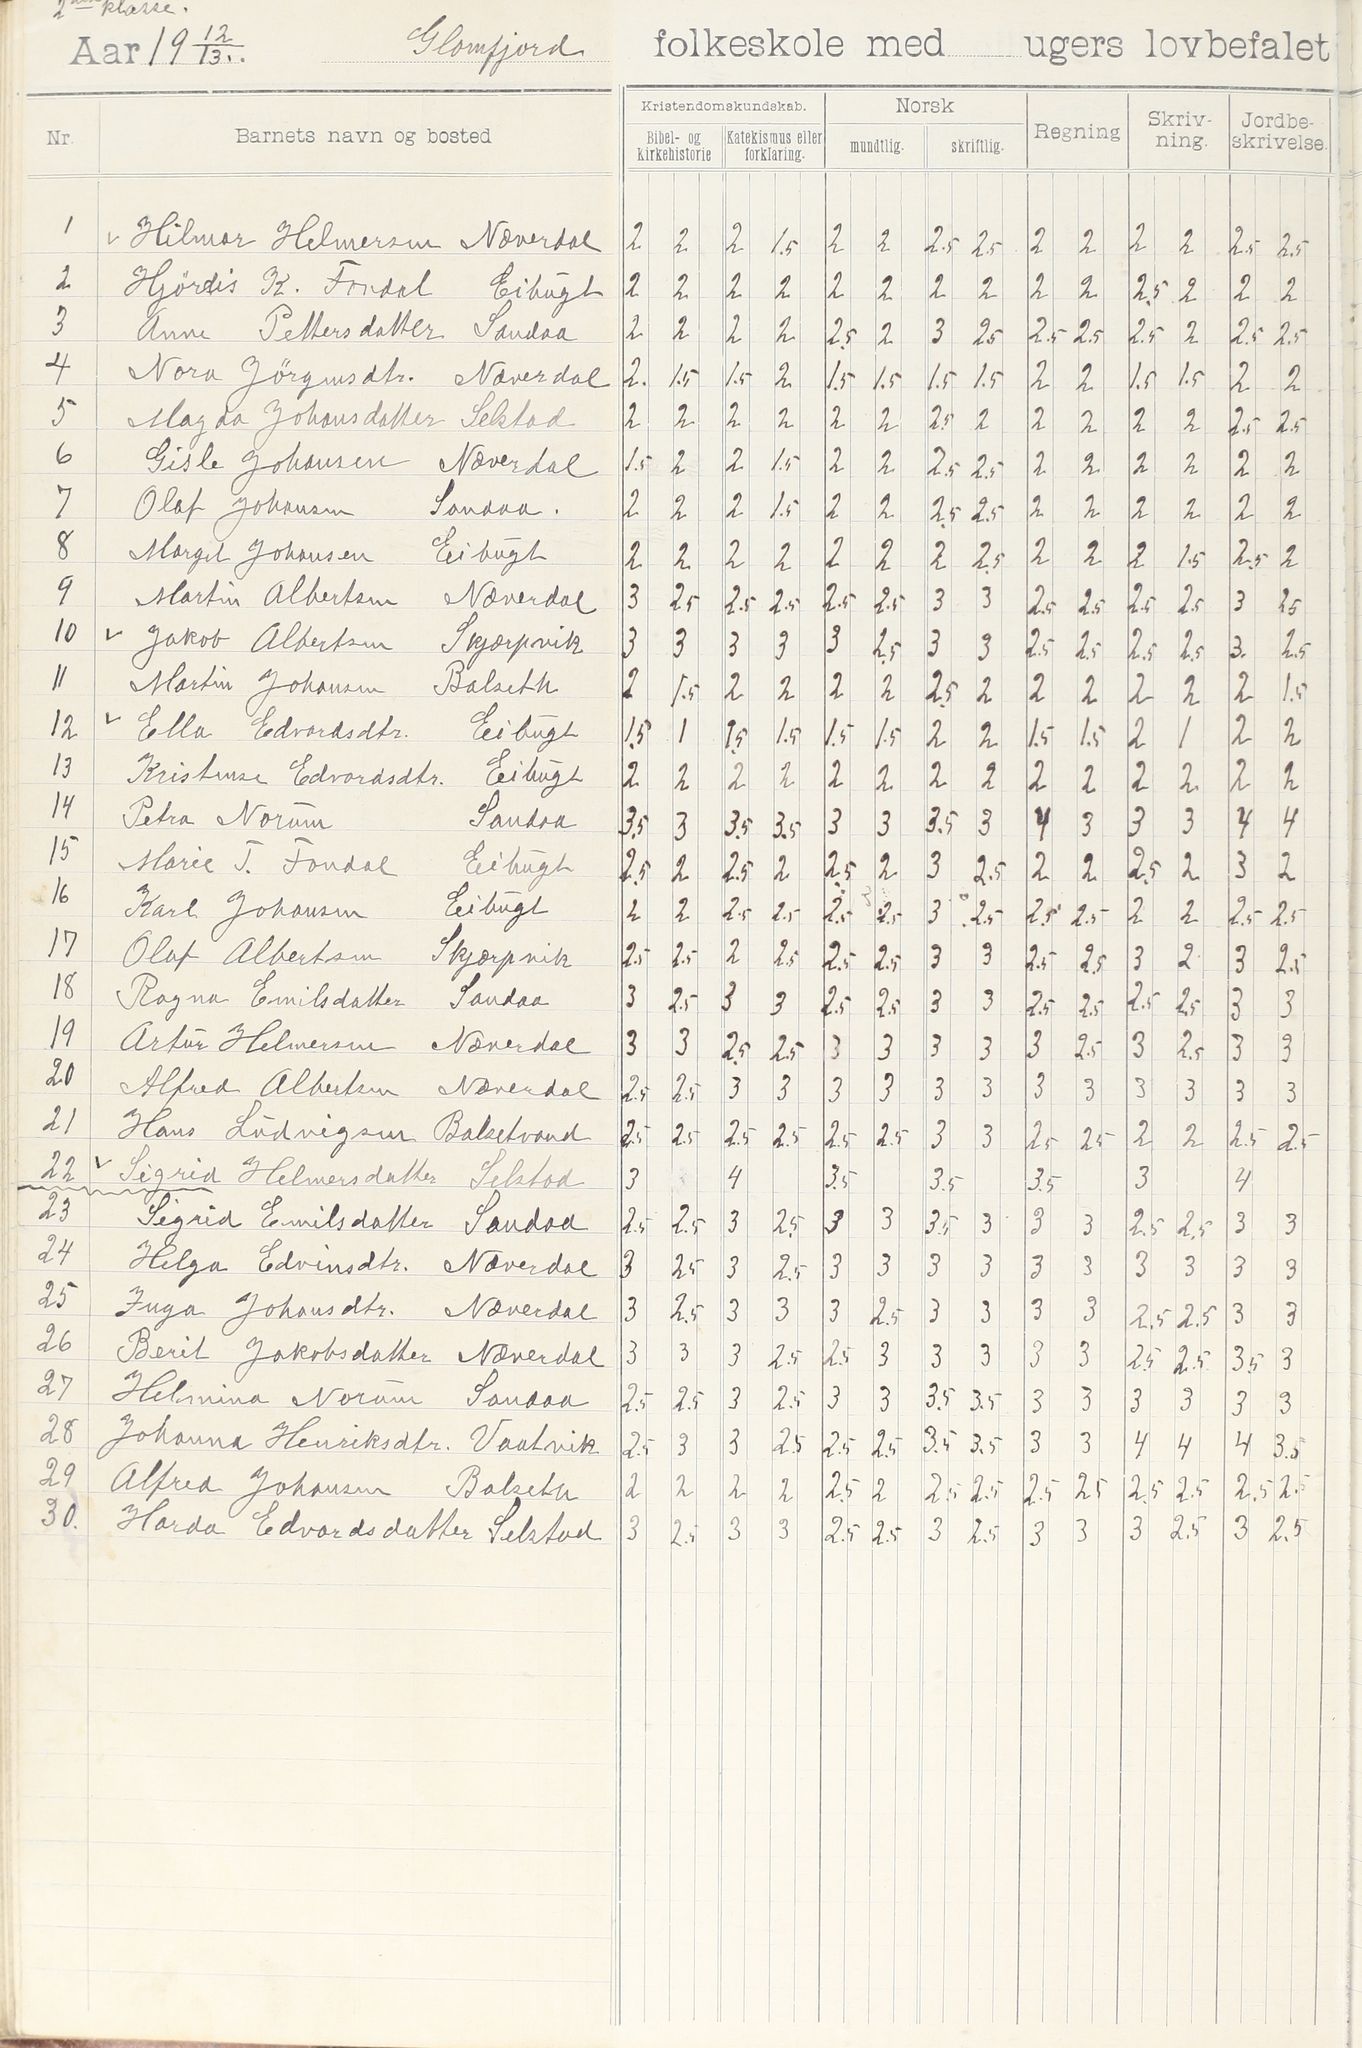 2den klasse.
Aar 19 12/13. Glomfjord folkeskole med ugers lovbefalet
Nr. Barnets navn og bosted Kristendomskundskab. Norsk Regning Skriv-ning. Jordbe-skrivelse.
Bibel- og kirkehistorie Katekismus eller forklaring. mundtlig. skriftlig.
1 v Hilmar Helmersen Næverdal 2 2 2 1.5 2 2 2.5 2.5 2 2 2 2 2.5 2.5
2 Hjördis K. Fondal Eibugt 2 2 2 2 2 2 2 2 2 2 2.5 2 2 2
3 Anne Pettersdatter Sandaa 2 2 2 2 2.5 2 3 2.5 2.5 2.5 2.5 2 2.5 2.5
4 Nora Jörgensdtr. Næverdal 2. 1.5 1.5 2 1.5 1.5 1.5 1.5 2 2 1.5 1.5 2 2
5 Magda Johansdatter Selstad 2 2 2 2 2 2 2.5 2 2 2 2 2 2.5 2.5
6 Gisle Johansen Næverdal 1.5 2 2 1.5 2 2 2.5 2.5 2 2 2 2 2 2
7 Olaf Johansen Sandaa. 2 2 2 1.5 2 2 2.5 2.5 2 2 2 2 2 2
8 Margit Johansen Eibugt 2 2 2 2 2 2 2 2.5 2 2 2 1.5 2.5 2
9 Martin Albertsen Næverdal 3 2.5 2.5 2.5 2.5 2.5 3 3 2.5 2.5 2.5 2.5 3 2.5
10 v Jakob Albertsen Skjærpvik 3 3 3 3 3 2.5 3 3 2.5 2.5 2.5 2.5 3. 2.5
11 Martin Johansen Balseth 2 1.5 2 2 2 2 2.5 2 2 2 2 2 2 1.5
12 v Ella Edvardsdtr. Eibugt 1.5 1 1.5 1.5 1.5 1.5 2 2 1.5 1.5 2 1 2 2
13 Kristense Edvardsdtr. Eibugt 2 2 2 2 2 2 2 2 2 2 2 2 2 2
14 Petra Norum Sandaa 3.5 3 3.5 3.5 3 3 3.5 3 4 3 3 3 4 4
15 Marie T. Fondal Eibugt 2.5 2 2.5 2 2.5 2 3 2.5 2 2 2.5 2 3 2
16 Karl Johansen Eibugt 2 2 2.5 2.5 2.5 2.5 3 2.5 2.5 2.5 2 2 2.5 2.5
17 Olaf Albertsen Skjærpvik 2.5 2.5 2 2.5 2.5 2.5 3 3 2.5 2.5 3 2 3 2.5
18 Ragna Emilsdatter Sandaa 3 2.5 3 3 2.5 2.5 3 3 2.5 2.5 2.5 2.5 3 3
19 Artur Helmersen Næverdal 3 3 2.5 2.5 3 3 3 3 3 2.5 3 2.5 3 3
20 Alfred Albertsen Næverdal 2.5 2.5 3 3 3 3 3 3 3 3 3 3 3 3
21 Hans Ludvigsen Balsetvand 2.5 2.5 2.5 2.5 2.5 2.5 3 3 2.5 2.5 2 2 2.5 2.5
22 v Sigrid Helmersdatter Selstad 3 4 3.5 3.5 3.5 3 4
23 Sigrid Emilsdatter Sandaa 2.5 2.5 3 2.5 3 3 3.5 3 3 3 2.5 2.5 3 3
24 Helga Edvinsdtr. Næverdal 3 2.5 3 2.5 3 3 3 3 3 3 3 3 3 3
25 Inga Johansdtr. Næverdal 3 2.5 3 3 3 2.5 3 3 3 3 2.5 2.5 3 3
26 Berit Jakobsdatter Næverdal 3 3 3 2.5 2.5 3 3 3 3 3 2.5 2.5 3.5 3
27 Helmina Norum Sandaa 2.5 2.5 3 2.5 3 3 3.5 3.5 3 3 3 3 3 3
28 Johanna Henriksdtr. Vaatvik 2.5 3 3 2.5 2.5 2.5 3.5 3.5 3 3 4 4 4 3.5
29 Alfred Johansen Balseth 2 2 2 2 2.5 2 2.5 2.5 2.5 2.5 2.5 2.5 2.5 2.5
30. Harda Edvardsdatter Selstad 3 2.5 3 3 2.5 2.5 3 2.5 3 3 3 2.5 3 2.5